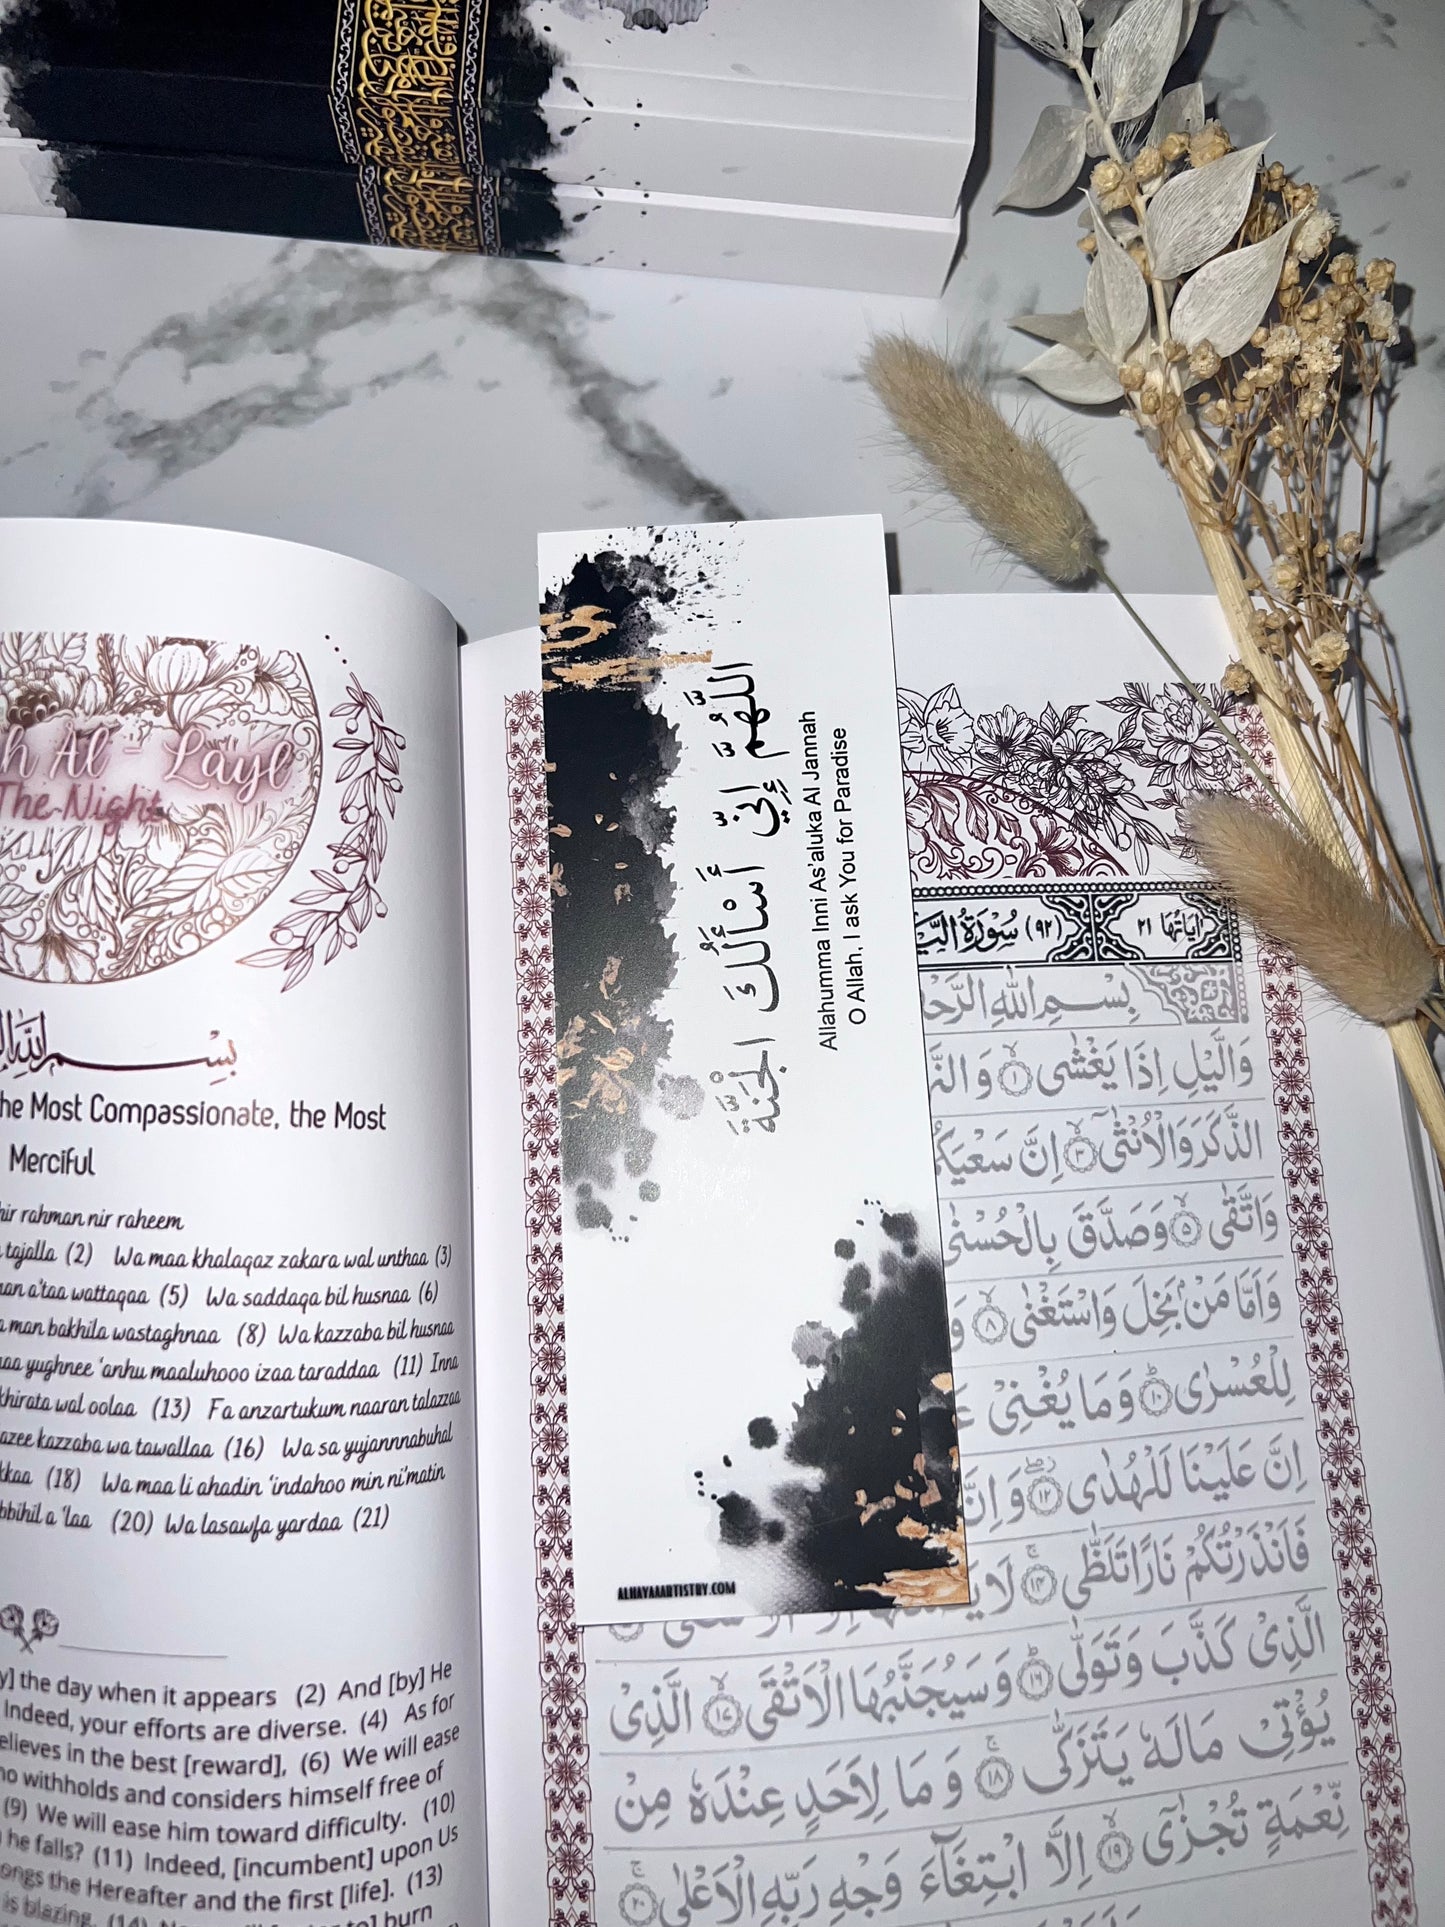 h Al - Layl
The Night
بِسْمِ اللّٰهِ
he Most Compassionate, the Most
Merciful
hir rahman nir raheem
tajalla (2) Wa maa khalaqaz zakara wal unthaa (3)
an a'taa wattaqaa (5) Wa saddaqa bil husnaa (6)
a man bakhila wastaghnaa (8) Wa kazzaba bil husnaa
aa yughnee 'anhu maaluhooo izaa taraddaa (11) Inna
khirata wal oolaa (13) Fa anzartukum naaran talazzaa
azee kazzaba wa tawallaa (16) Wa sa yujannnabuhal
kkaa (18) Wa maa li ahadin 'indahoo min ni'matin
bbihil a 'laa (20) Wa lasawfa yardaa (21)
y] the day when it appears (2) And [by] He
Indeed, your efforts are diverse. (4) As for
elieves in the best [reward], (6) We will ease
ho withholds and considers himself free of
(9) We will ease him toward difficulty. (10)
he falls? (11) Indeed, [incumbent] upon Us
ongs the Hereafter and the first [life]. (13)
is blazing. (14)
burn
اللَّهُمَّ إِنِّي أَسْأَلُكَ الْجَنَّةَ
Allahumma Inni As'aluka Al Jannah
O Allah, I ask You for Paradise
ALHAYAAARTISTRY.COM
اٰيَاتُهَا ٢١ (٩٢) سُوْرَةُ
بِسْمِ اللّٰهِ الرَّح
وَالَّيْلِ اِذَا يَغْشٰى ١ وَالنَّ
الذَّكَرَ وَالْاُنْثٰٓى ٣ اِنَّ سَعْيَكُ
وَاتَّقٰى ٥ وَصَدَّقَ بِالْحُسْنٰى
وَاَمَّا مَنْۢ بَخِلَ وَاسْتَغْنٰى ٨ وَ
لِلْعُسْرٰى ١٠ وَمَا يُغْنِيْ عَ
اِنَّ عَلَيْنَا لَلْهُدٰى ١٢ وَاِنَّ
فَاَنْذَرْتُكُمْ نَارًا تَلَظّٰى ١٤ لَا
الَّذِيْ كَذَّبَ وَتَوَلّٰى ١٦ وَسَيُجَنَّبُهَا الْاَتْقَى ١٧ الَّذِيْ
يُؤْتِيْ مَالَهٗ يَتَزَكّٰى ١٨ وَمَا لِاَحَدٍ عِنْدَهٗ مِنْ
نِّعْمَةٍ تُجْزٰٓى ١٩ اِلَّا ابْتِغَآءَ وَجْهِ رَبِّهِ الْاَعْلٰى ٢٠